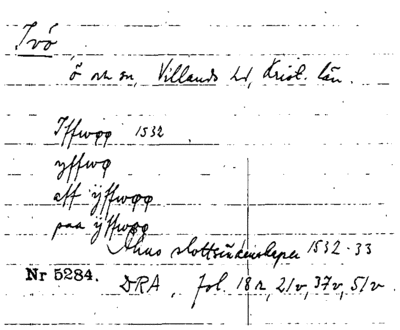 Ivö
ö och sn, Villands hd, Krist. län.
Iffwøø 1532
yffwø
aff ÿffwøø
paa ÿffwøø
Åhus slottsräkenskaper 1532-33
Nr 5284.
DRA, fol. 18r, 21v, 37v, 51v.